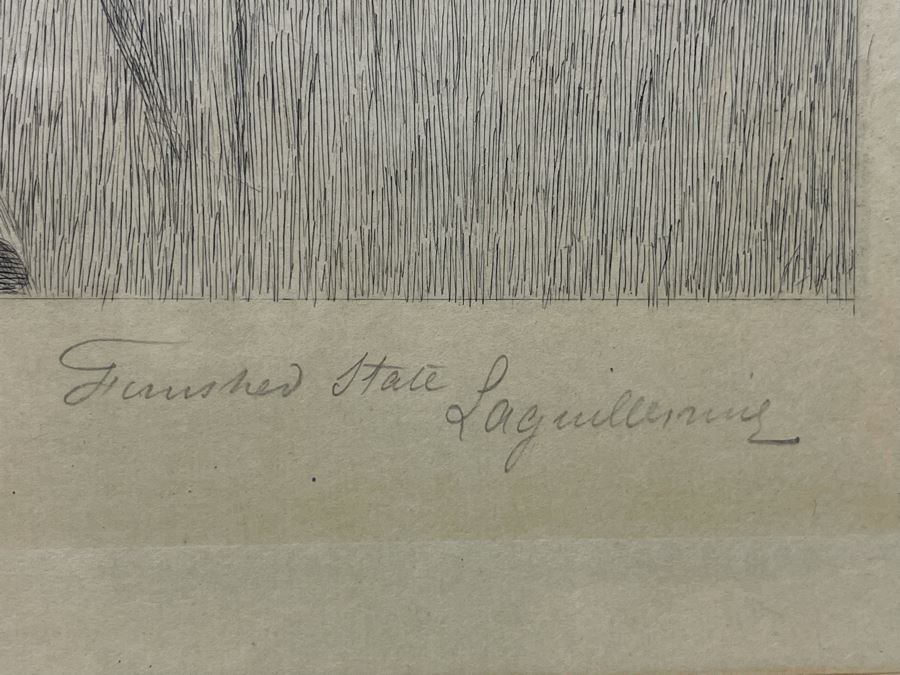 Finished State
Laguillermie